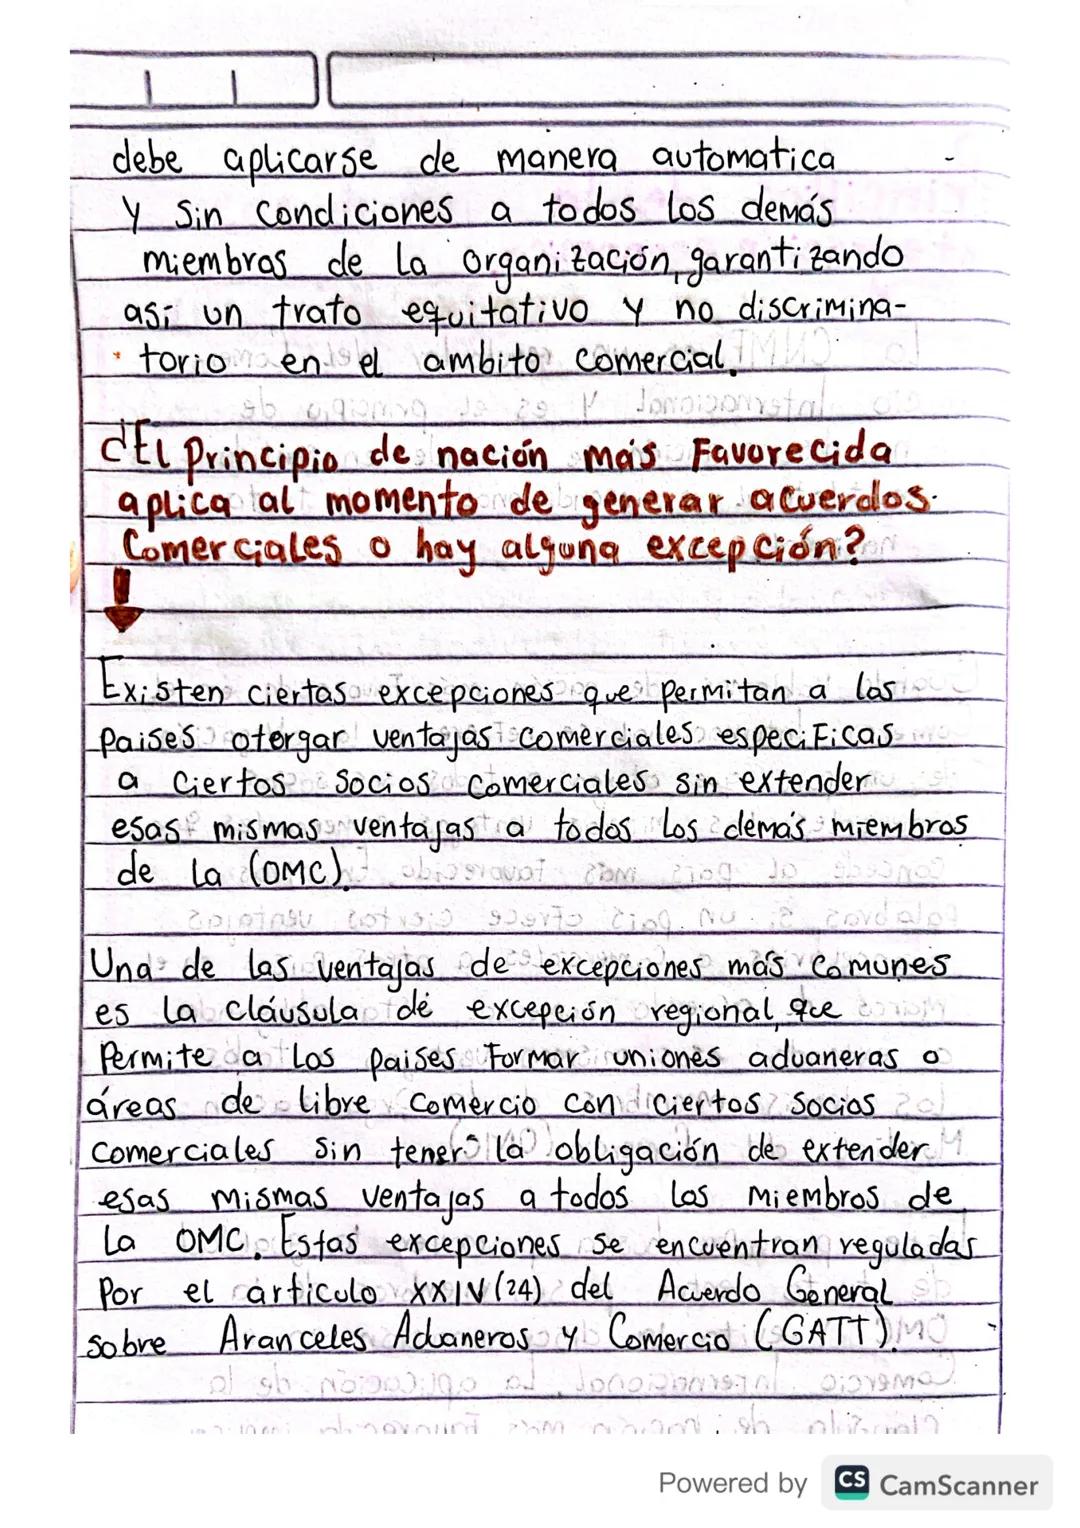 debe aplicarse de manera automatica
y sin condiciones a todos los demás
miembros de la organización, garantizando
así un trato equitativo y no discrimina-
torio en el ambito comercial.
¿El Principio de nación más Favorecida
aplica al momento de generar acuerdos
Comerciales o hay alguna excepción?
Existen ciertas excepciones que permitan a los
paises otorgar ventajas comerciales especificas
a ciertos socios comerciales sin extender
esas mismas ventajas a todos los demás miembros
de la (OMC).
Una de las ventajas de excepciones más comunes
es la cláusula de excepción regional, que
Permite a los paises Formar uniones aduaneras o
áreas de libre comercio con ciertos socios
comerciales sin tener la obligación de extender
esas mismas ventajas a todos los miembros de
la OMC. Estas excepciones se encuentran reguladas
Por el articulo XXIV (24) del Acuerdo General
sobre Aranceles Aduaneros y Comercio (GATT).
Powered by CS CamScanner